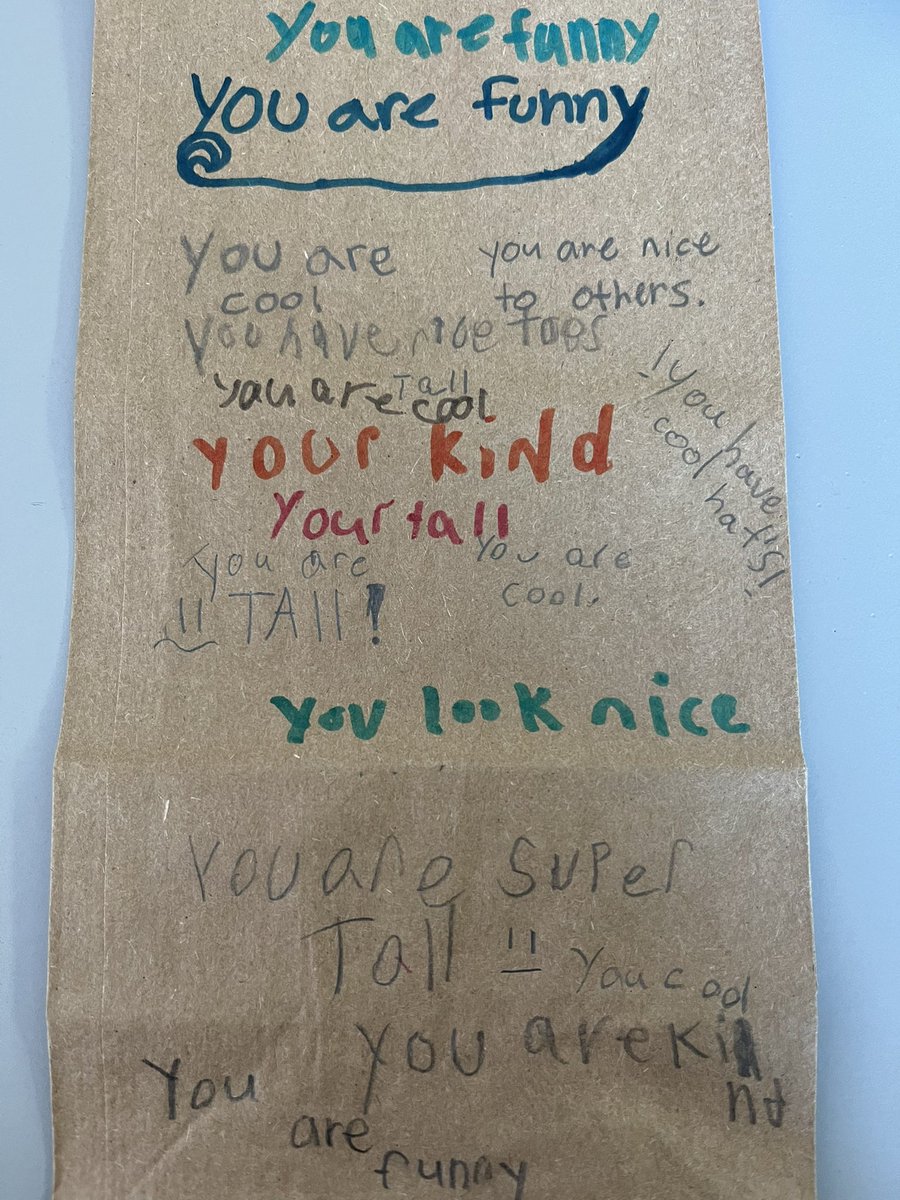 You are funny
you are funny
you are
cool
you are nice
to others.
you have nice toes
Tall
you are cool
! you have
cool
hat's!
your kind
Your tall
you are
TAll!
You are
cool.
you look nice
You are super
Tall
You cool
You are Kin
nd
You
are
funny